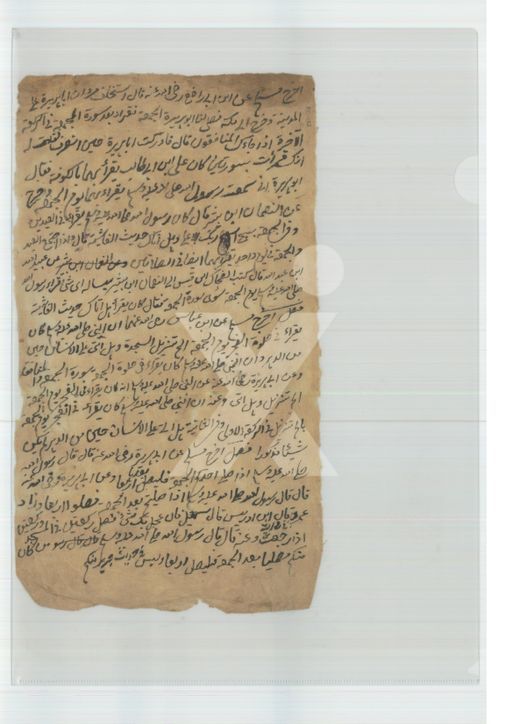 اخرج مسلم عن ابن ابي رافع رضي الله عنه قال استخلف مروان ابا هريرة على
المدينة وخرج الى مكة فصلى لنا ابو هريرة الجمعة فقرأ بعد سورة الجمعة في الركعة
الاخرة اذا جاءك المنافقون قال فادركت ابا هريرة حين انصرف فقلت له
انك قرأت بسورتين كان علي ابن ابي طالب يقرأ بهما بالكوفة فقال
ابو هريرة اني سمعت رسول الله صلى الله عليه وسلم يقرأ بهما يوم الجمعة واخرج
عن النعمان ابن بشير قال كان رسول الله صلى الله عليه وسلم يقرأ في العيدين
وفي الجمعة بسبح اسم ربك الاعلى وهل اتاك حديث الغاشية قال واذا اجتمع العيد
والجمعة في يوم واحد يقرأ بهما ايضا في الصلاتين وعن عبيد الله
ابن عبد الله قال كتب الضحاك ابن قيس الى النعمان ابن بشير يسأله اي شيء قرأ رسول الله
صلى الله عليه وسلم يوم الجمعة سوى سورة الجمعة فقال كان يقرأ هل اتاك حديث الغاشية
فصل اخرج مسلم عن ابن عباس رضي الله عنهما ان النبي صلى الله عليه وسلم كان
يقرأ في صلوة الفجر يوم الجمعة الم تنزيل السجدة وهل اتى على الانسان حين
من الدهر وان النبي صلى الله عليه وسلم كان يقرأ في صلوة الجمعة سورة الجمعة والمنافقين
وعن ابي هريرة رضي الله عنه عن النبي صلى الله عليه وسلم انه كان يقرأ في الفجر يوم الجمعة
الم تنزيل وهل اتى وعنه ان النبي صلى الله عليه وسلم كان يقرأ في الصبح يوم الجمعة
بالم تنزيل في الركعة الاولى وفي الثانية هل اتى على الانسان حين من الدهر لم يكن
شيئا مذكورا فصل اخرج مسلم عن ابي هريرة رضي الله عنه قال قال رسول الله
صلى الله عليه وسلم اذا صلى احدكم الجمعة فليصل بعدها اربعا وعن ابي هريرة رضي الله عنه
قال قال رسول الله صلى الله عليه وسلم اذا صليتم بعد الجمعة فصلوا اربعا وزاد
عمرو قال ابن ادريس قال سهيل فان عجل بك شيء فصل ركعتين في المسجد وركعتين
اذا رجعت وعنه قال قال رسول الله صلى الله عليه وسلم من كان
منكم مصليا بعد الجمعة فليصل اربعا وليس في حديث جرير منكم